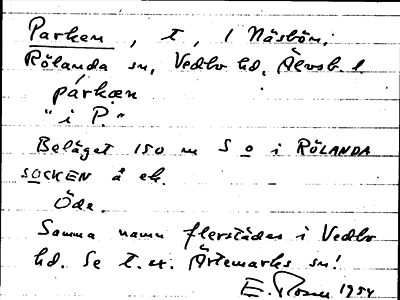 Parken, t, 1 Näsbön,
Rölanda sn, Vedbo hd, Älvsb. l.
párkæn
"i P."
Beläget 150 m S o i RÖLANDA
SOCKEN å ek.
Öde.
Samma namn flerstädes i Vedbo
hd. Se t. ex. Ärtemarks sn!
E. 1954